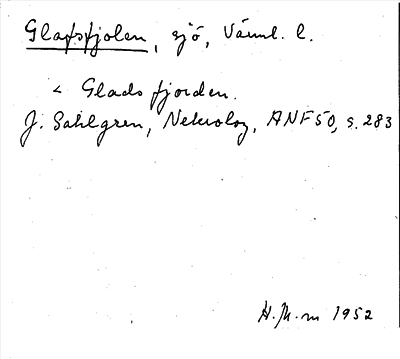 Glafsfjolen, sjö, Värml. l.
< Glads fjorden.
J. Sahlgren, Nekrolog, ANF 50, s. 283
H. M-m 1952